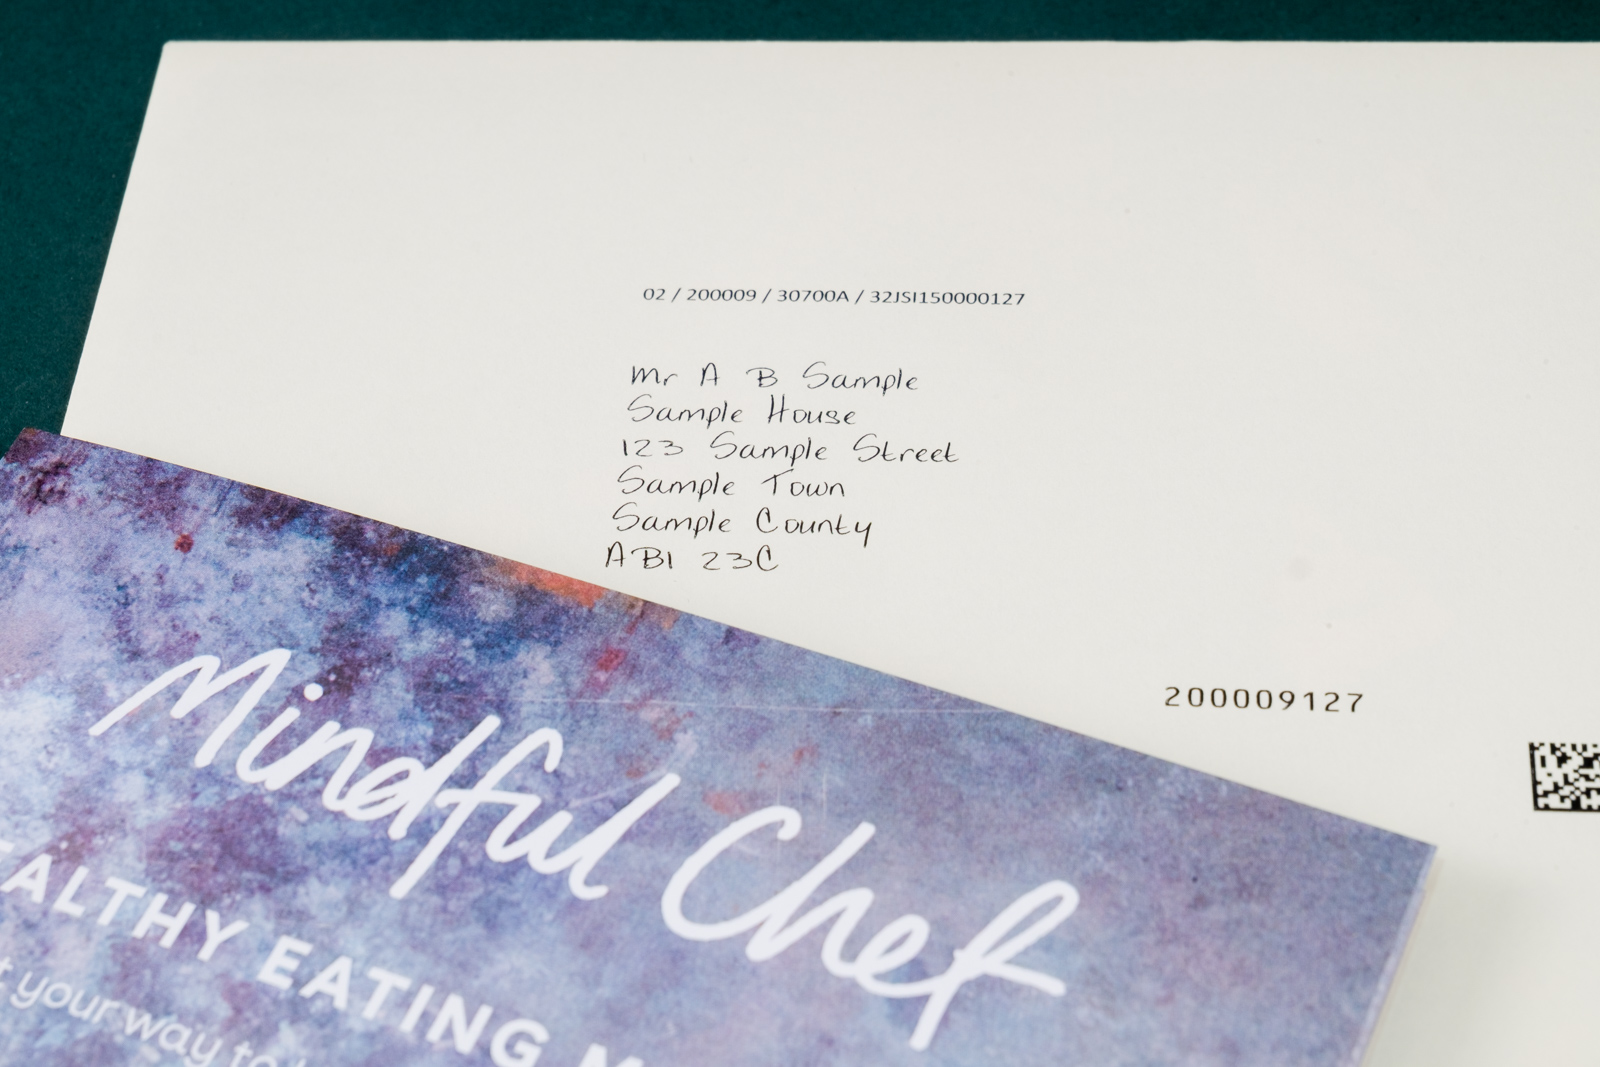 02 / 200009 / 30700A / 32JSI150000127
Mr A B Sample
Sample House
123 Sample Street
Sample Town
Sample County
AB1 23C
200009127
Mindful Chef
EALTHY EATING
your way to